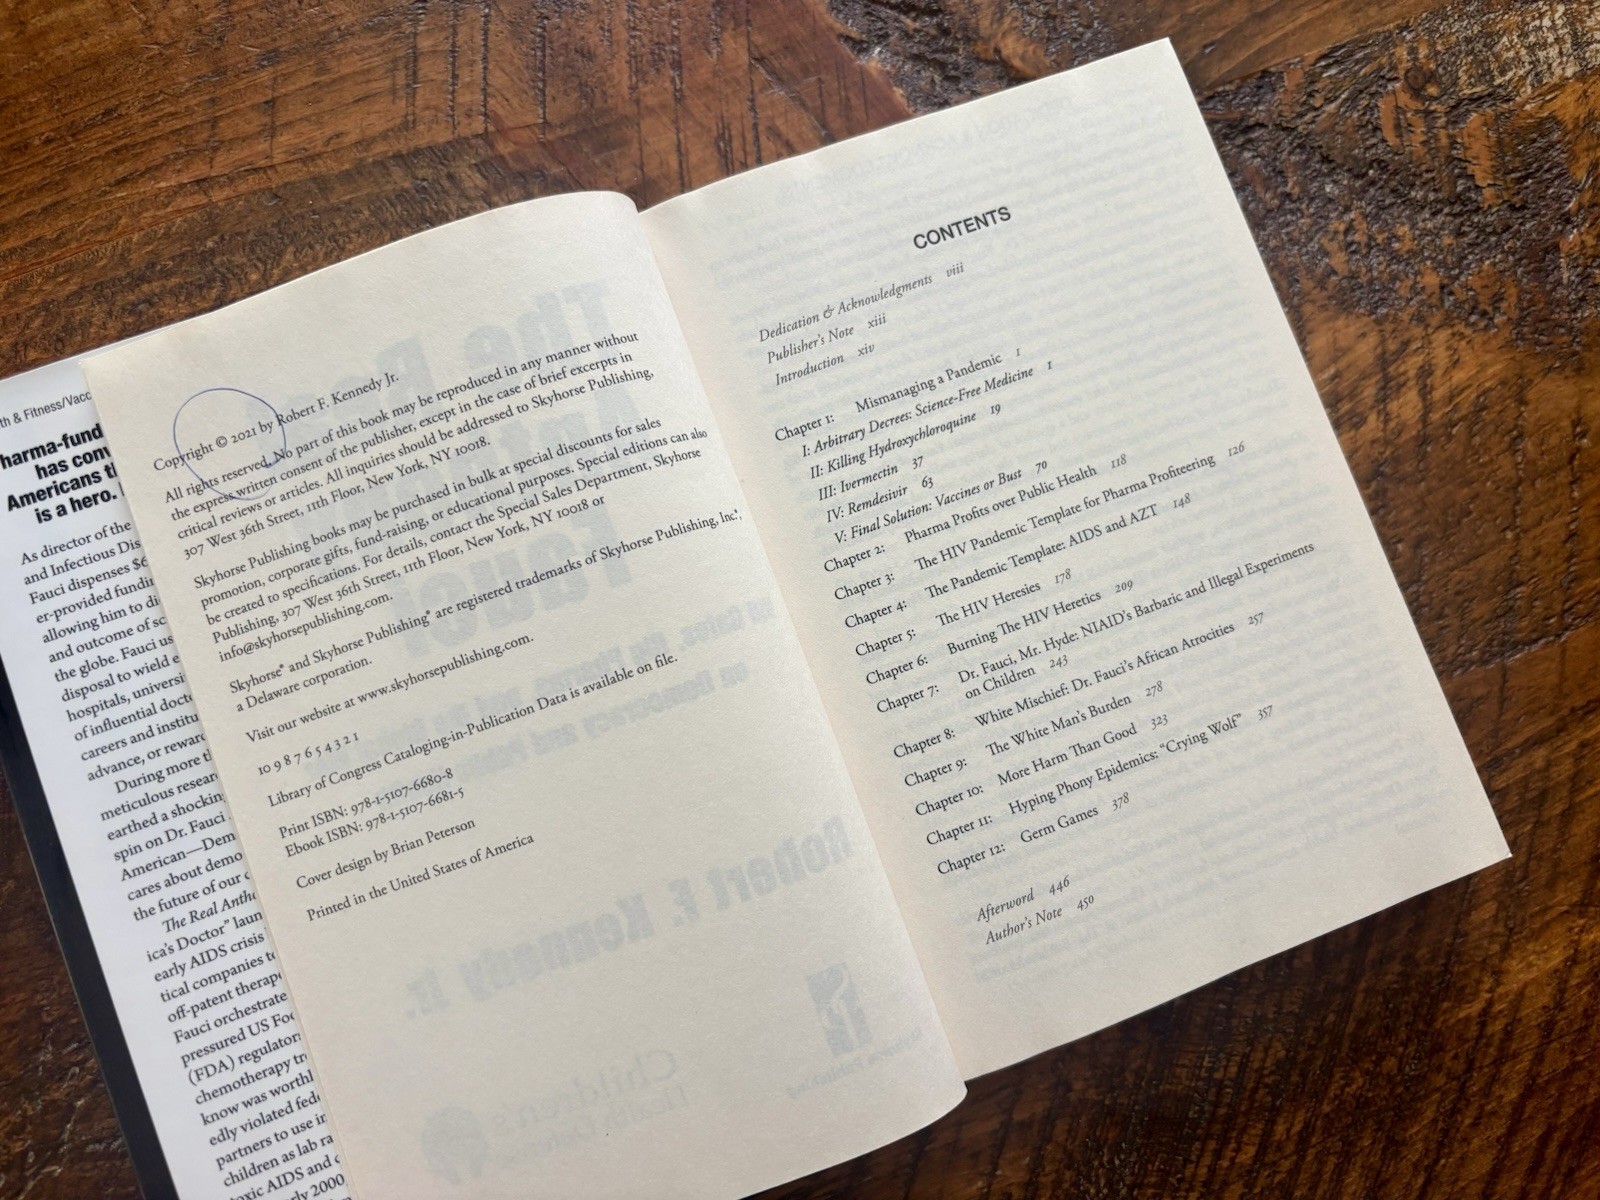 th & Fitness/Vacc
harma-fund
has conv
Americans th
is a hero.
As director of the
and Infectious Dis
Fauci dispenses $6
er-provided fundin
allowing him to di
and outcome of sc
the globe. Fauci us
disposal to wield e
hospitals, universi
of influential docto
careers and institu
advance, or rewar
During more th
meticulous resear
earthed a shockin
spin on Dr. Fauci
American—Dem
cares about demo
the future of our c
The Real Antho
ica's Doctor" laun
early AIDS crisis
tical companies to
off-patent therap
Fauci orchestrate
pressured US Foo
(FDA) regulators
chemotherapy tr
know was worthl
edly violated fede
partners to use in
children as lab ra
toxic AIDS and c
rly 2000
Copyright © 2021 by Robert F. Kennedy Jr.
All rights reserved. No part of this book may be reproduced in any manner without
the express written consent of the publisher, except in the case of brief excerpts in
critical reviews or articles. All inquiries should be addressed to Skyhorse Publishing,
307 West 36th Street, 11th Floor, New York, NY 10018.
Skyhorse Publishing books may be purchased in bulk at special discounts for sales
promotion, corporate gifts, fund-raising, or educational purposes. Special editions can also
be created to specifications. For details, contact the Special Sales Department, Skyhorse
Publishing, 307 West 36th Street, 11th Floor, New York, NY 10018 or
info@skyhorsepublishing.com.
Skyhorse® and Skyhorse Publishing® are registered trademarks of Skyhorse Publishing, Inc.®,
a Delaware corporation.
Visit our website at www.skyhorsepublishing.com.
10 9 8 7 6 5 4 3 2 1
Library of Congress Cataloging-in-Publication Data is available on file.
Print ISBN: 978-1-5107-6680-8
Ebook ISBN: 978-1-5107-6681-5
Cover design by Brian Peterson
Printed in the United States of America
CONTENTS
Dedication & Acknowledgments viii
Publisher's Note xiii
Introduction xiv
Chapter 1: Mismanaging a Pandemic 1
I: Arbitrary Decrees: Science-Free Medicine 1
II: Killing Hydroxychloroquine 19
III: Ivermectin 37
IV: Remdesivir 63
V: Final Solution: Vaccines or Bust 70
Chapter 2: Pharma Profits over Public Health 118
Chapter 3: The HIV Pandemic Template for Pharma Profiteering 126
Chapter 4: The Pandemic Template: AIDS and AZT 148
Chapter 5: The HIV Heresies 178
Chapter 6: Burning The HIV Heretics 209
Chapter 7: Dr. Fauci, Mr. Hyde: NIAID's Barbaric and Illegal Experiments
on Children 243
Chapter 8: White Mischief: Dr. Fauci's African Atrocities 257
Chapter 9: The White Man's Burden 278
Chapter 10: More Harm Than Good 323
Chapter 11: Hyping Phony Epidemics: "Crying Wolf" 357
Chapter 12: Germ Games 378
Afterword 446
Author's Note 450